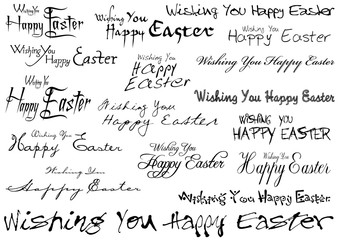 Wishing You
Happy Easter
Wishing You
Happy Easter
Wishing You Happy Easter
Wishing You
Happy Easter
Wishing You
Happy Easter
Wishing You
Happy
Easter
Wishing You Happy Easter
Wishing You
Happy Easter
Wishing You
Happy Easter
Wishing You Happy Easter
Wishing You
Happy Easter
Wishing You
Happy Easter
Wishing You
Happy Easter
Wishing You
Happy Easter
Wishing
Happy Easter
Wishing You Happy Easter
Wishing You Happy Easter